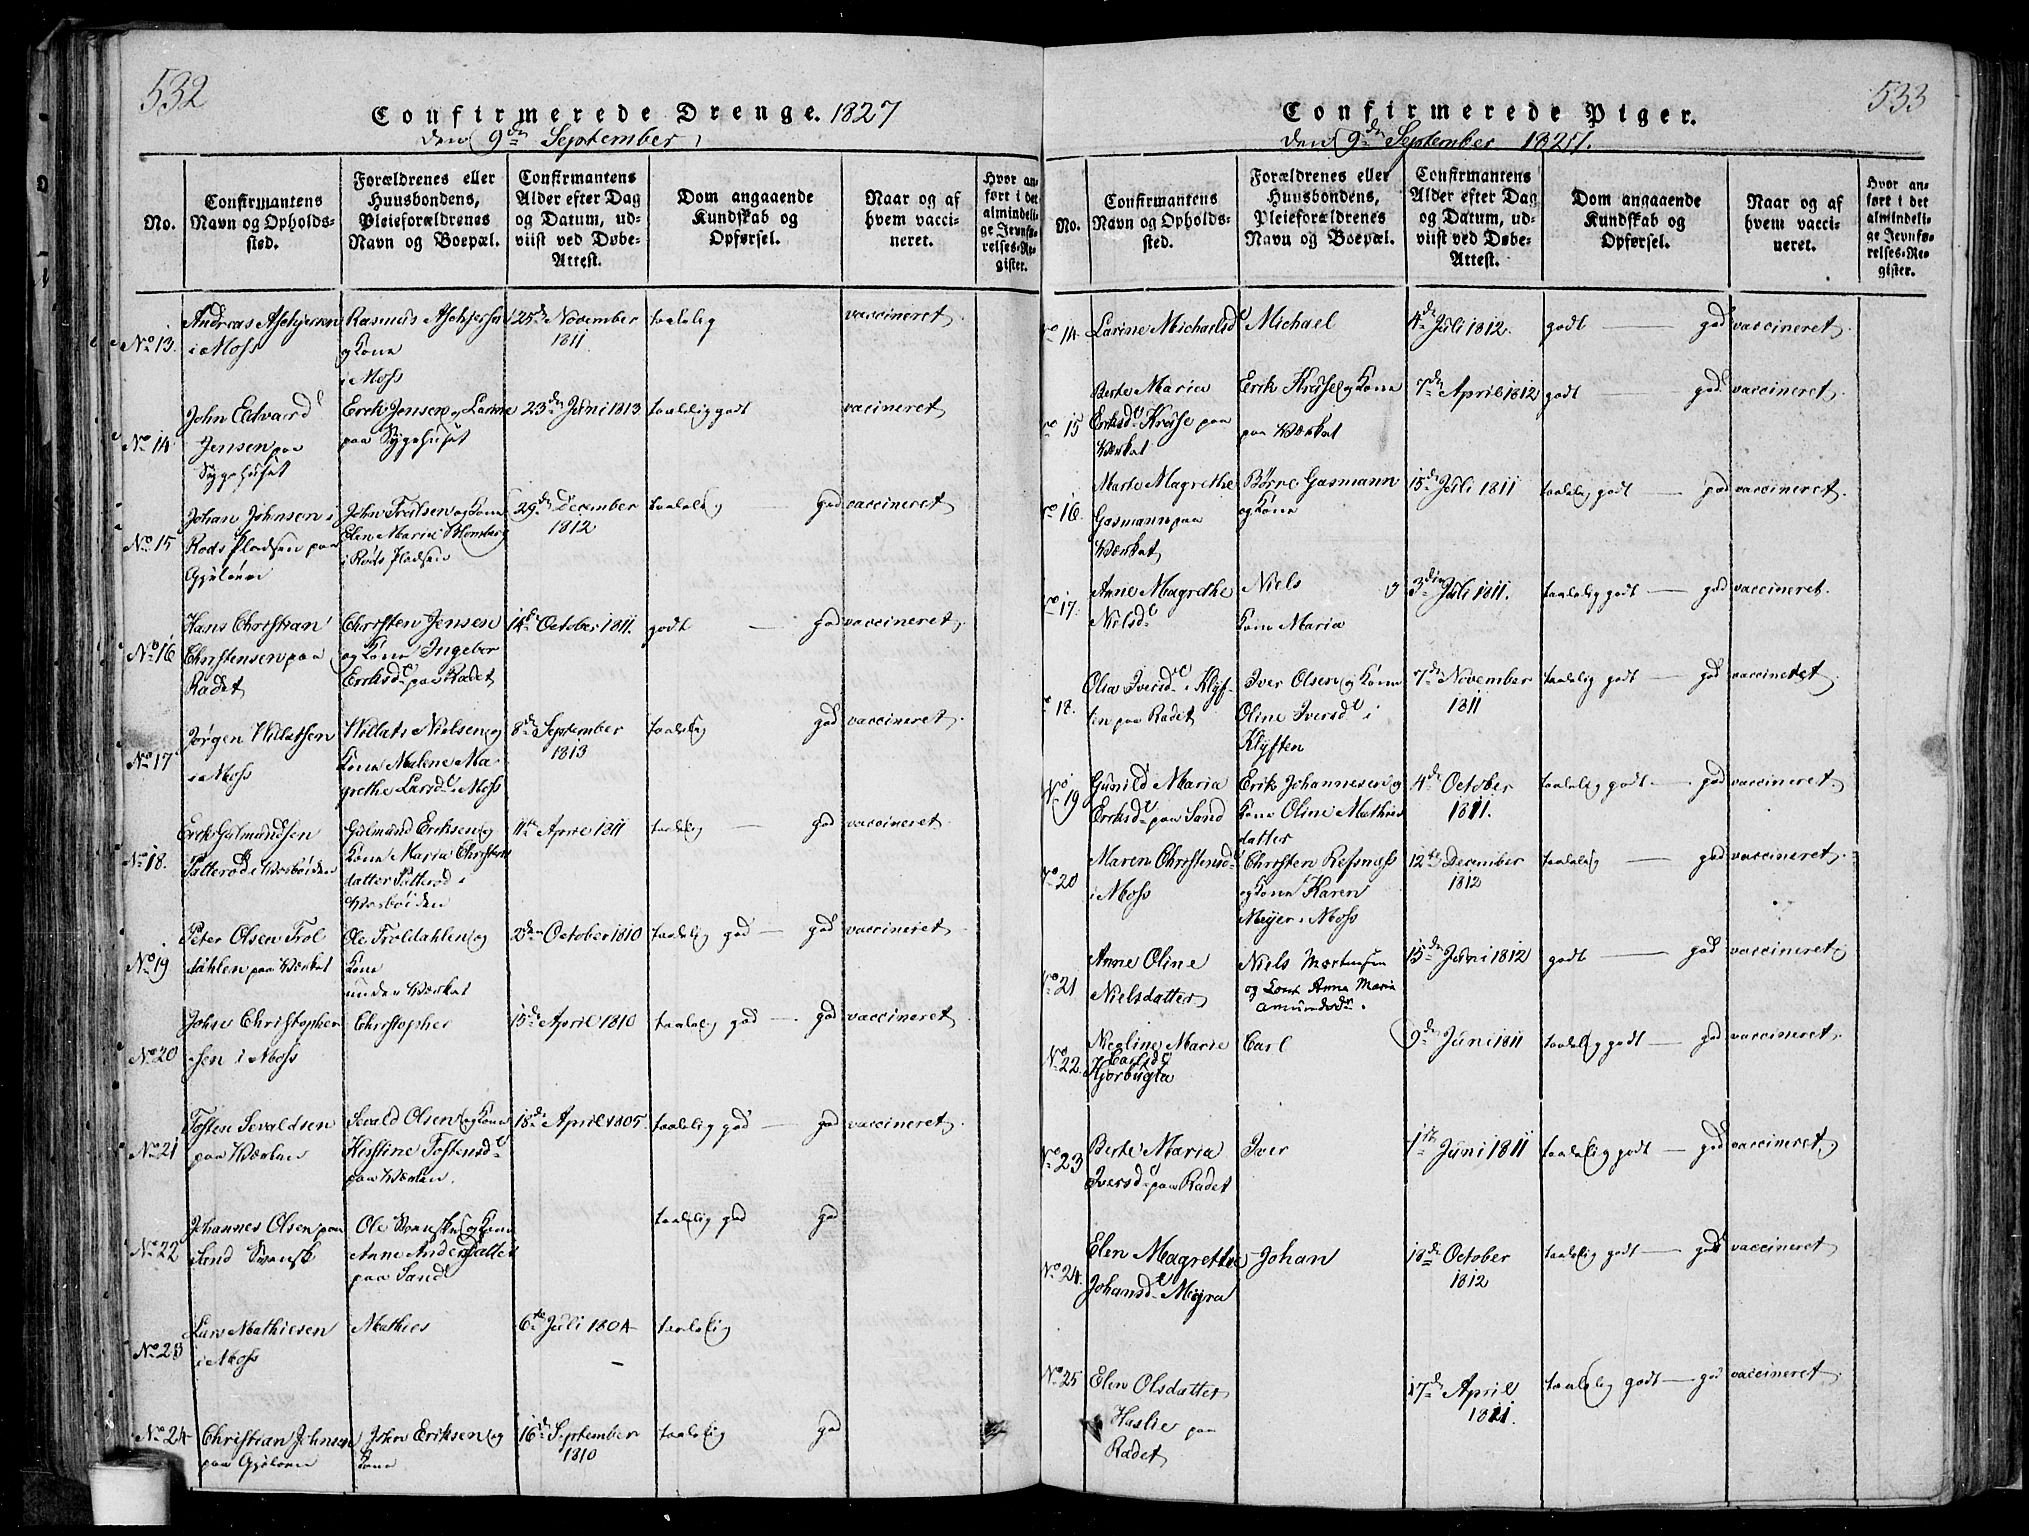 532
Confirmerede Drenge. 1827
den 9de September
No.
Confirmantens
Navn og Opholds-
sted.
Forældrenes eller
Huusbondens,
Pleieforældrenes
Navn og Boepæl.
Confirmantens
Alder efter Dag
og Datum, ud-
viist ved Døbe-
Attest.
Dom angaaende
Kundskab og
Opførsel.
Naar og af
hvem vacci-
neret.
Hvor an-
ført i det
almindeli-
ge Jevnfø-
relses-Re-
gister.
No 13.
Andreas
i Moss
Rasmus
og Kone
i Moss
25de November
1811
taalelig
vaccineret
No 14
John Edvard
Jensen paa
Sygehuset
Erik Jensen og Karine
paa Sygehuset
23de Juni 1813
taalelig godt
vacineret
No 15
Johan Johnsen i
Rods Pladsen paa
John og Kone
Elen Maria Blomberg
i Rods Pladsen
29de December
1812
taalelig
god
vaccineret
No 16
Hans Christian
Christensen paa
Radet
Christen Jensen
og Kone Ingebor
Eriksd. paa Radet
14de October 1811.
godt —
god
vaccineret
No 17
Jørgen
i Moss
Nielsen og
Kone Malene Ma-
grethe Larsd. i Moss
8de September
1813
taalelig
god
vaccineret
No 18.
Erik Gulmundsen
Gulmund Eriksen og
Kone Maria Christens
datter
11te April 1811
taalelig —
god
vaccineret
No 19
Peter Olsen Trol
dahlen paa Værket
Ole Troldahlen og
Kone
under Værket
2den October 1810
taalelig god —
god
vaccineret
No 20
Christopher
sen i Moss
Christopher
15de April 1810
taalelig god —
god
vaccineret
No 21
Tosten Sevaldsen
paa
Sevald Olsen og Kone
Kirstine Tostensd.
paa
18de April 1805.
taalelig god —
god
vaccineret
No 22
Johannes Olsen paa
Sand Svensk
Ole Svensk og Kone
Anne Andersdatter
paa Sand
taalelig god
god
No 23
Lars Mathiesen
i Moss
Mathies
6te Juli 1804
taalelig
No 24
Christian Johnsen
paa
John Eriksen og
Kone
16de September
1810
taalelig
god
533
Confirmerede Piger.
den 9de September 1827.
No.
Confirmantens
Navn og Opholds-
sted.
Forældrenes eller
Huusbondens,
Pleieforældrenes
Navn og Boepæl.
Confirmantens
Alder efter Dag
og Datum, ud-
viist ved Døbe-
Attest.
Dom angaaende
Kundskab og
Opførsel.
Naar og af
hvem vacci-
neret.
Hvor an-
ført i det
almindeli-
ge Jevnfø-
relses-Re-
gister.
No 14.
Larine Michaelsd.
Michael
4de Juli 1812.
godt —
god
vaccineret.
No 15
Berte Maria
Eriksd. Kruse paa
Værket
Erik Kruse og Kone
paa Værket
7de April 1812
godt —
god
vaccineret.
No 16.
Marte Magrethe
Gasmann paa
Værket
Børre Gasmann
og Kone
15de Juli 1811
taalelig godt —
god
vaccineret.
No 17.
Anne Magrethe
Nielsd.
Niels og
Kone Maria
3die Juli 1811.
taalelig godt —
god
vaccineret.
No 18.
Olia Iversd. i Klyf-
ten paa Radet
Iver Olsen og Kone
Oline Iversd. i
Klyften
7de November
1811
taalelig godt —
god
vaccineret
No 19
Gunild Maria
Eriksd. paa Sand
Erik Johannesen og
Kone Oline Mathies
datter
4de October
1811.
taalelig godt —
god
vaccineret.
No 20
Maren Christensd.
i Moss
Christen Refsnæss
og Kone Karen
Meyer i Moss
12te December
1812
taalelig —
god
vaccineret.
No 21
Anne Oline
Nielsdatter
Niels Mortensen
og Kone Anna Maria
Amundsdr.
15de Juni 1812
godt —
god
vaccineret.
No 22.
Nicoline Marie
Carlsd.
Carl
9de Juni 1811
taalelig godt —
god
vaccineret.
No 23
Berte Maria
Iversd. paa Radet
Iver
1ste Juni 1811
taalelig godt —
god
vaccineret.
No 24.
Elen Magrethe
Johansd. Myra
Johan
18de October
1812
taalelig godt —
god
vaccineret
No 25
Elen Olsdatter
Haslie paa
Radet
17de April
1811.
taalelig godt —
god
vaccineret.